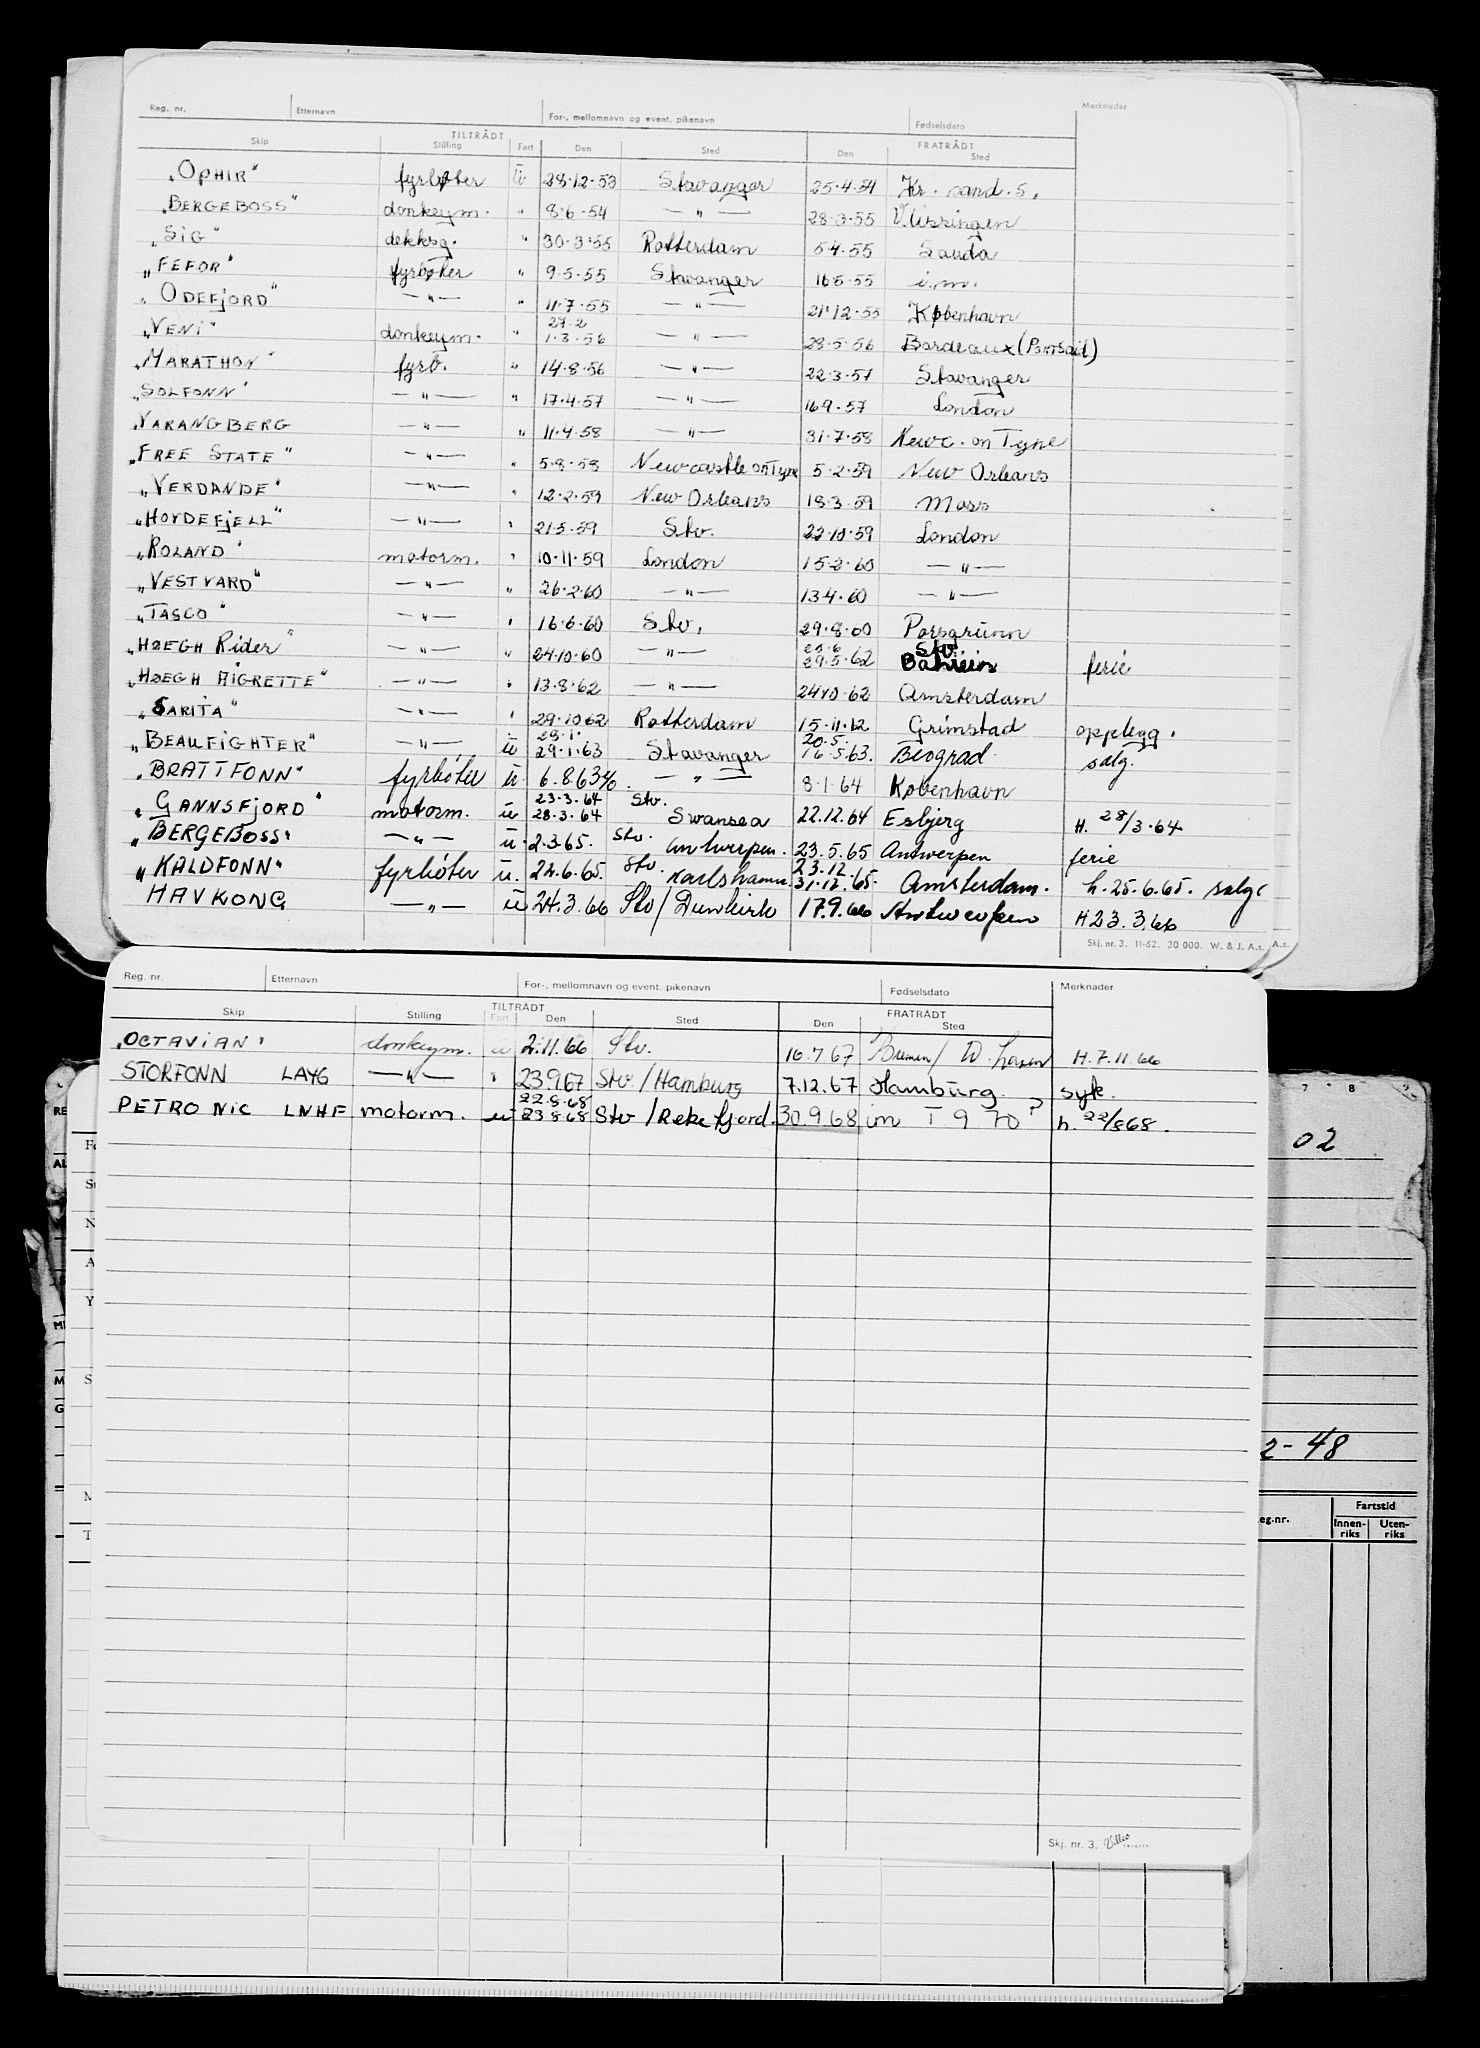 Reg. nr. Etternavn For-, mellomnavn og event. pikenavn Fødselsdato Merknader
TILTRÅDT FRATRÅDT
Skip Stilling Fart Den Sted Den Sted
"OPHIR" fyrbøter u 28.12.53 Stavanger 25.4.54 Kr. sand. S.
"BERGEBOSS" donkeym. " 8.6.54 —"— 28.3.55 Vlissingen
"SIG" dekksg. " 30.3.55 Rotterdam 5.4.55 Sauda
"FEFOR" fyrbøter " 9.5.55 Stavanger 16.5.55 i.m.
"ODEFJORD" —"— " 11.7.55 —"— 21.12.55 København
27.2
"VENI" donkeym. " 1.3.56 —"— 28.5.56 Bordeaux (Port Said)
"MARATHON" fyrb. " 14.8.56 —"— 22.3.57 Stavanger
"SOLFONN" —"— " 17.4.57 —"— 16.9.57 London
"VARANGBERG —"— " 11.4.58 —"— 31.7.58 Newc. on Tyne
"FREE STATE" —"— " 5.8.58 Newcastle on Tyne 5.2.59 New Orleans
"VERDANDE" —"— " 12.2.59 New Orleans 18.3.59 Moss
"HOVDEFJELL" —"— " 21.5.59 Stv. 22.10.59 London
"ROLAND" motorm. " 10.11.59 London 15.2.60 —"—
"VESTVARD" —"— " 26.2.60 —"— 13.4.60 —"—
"TASCO" —"— " 16.6.60 Stv. 29.8.60 Porsgrunn
Stv.
"HØEGH Rider" —"— " 24.10.60 —"— 29.5.62 Bahrein ferie
"HØEGH AIGRETTE" —"— " 13.8.62 —"— 24.10.62 Amsterdam
"SARITA" —"— " 29.10.62 Rotterdam 15.11.62 Grimstad opplegg.
28.1. 20.5.
"BEAUFIGHTER" —"— u 29.1.63 Stavanger 16.5.63. Beograd salg.
"BRATTFONN" fyrbøter u. 6.8.63 —"— 8.1.64 København
23.3.64 Stv.
"GANNSFJORD" motorm. u 28.3.64 Swansea 22.12.64 Esbjerg H. 28/3.64
"BERGEBOSS" —"— u. 2.3.65. Stv. Antwerpen. 23.5.65 Antwerpen ferie
23.12.
"KALDFONN" fyrbøter u. 24.6.65. Stv. Karlshamn. 31.12.65. Amsterdam. h. 25.6.65. salg
HAVKONG —"— u 24.3.66 Stv/Dunkirk 17.9.66 Antwerpen H 23.3.66
Skj. nr. 3. 11-62. 30 000. W. & J. A.s. A.s.
Reg. nr. Etternavn For-, mellomnavn og event. pikenavn Fødselsdato Merknader
TILTRÅDT FRATRÅDT
Skip Stilling Fart Den Sted Den Sted
"OCTAVIAN" donkeym. u 2.11.66 Stv. 16.7.67 Bremen/W.haven H.7.11.66
STORFONN LAYG —"— " 23.9.67 Stv/Hamburg 7.12.67 Hamburg syk.
22.8.68
PETRO NIC LNHF motorm. u 23.8.68 Stv/Rekefjord. 30.9.68 im T 9 70 ? h. 22/8 68.
Skj. nr. 3.
7 8
02
2-48
eg.nr. Fartstid
Innen-riks Uten-riks